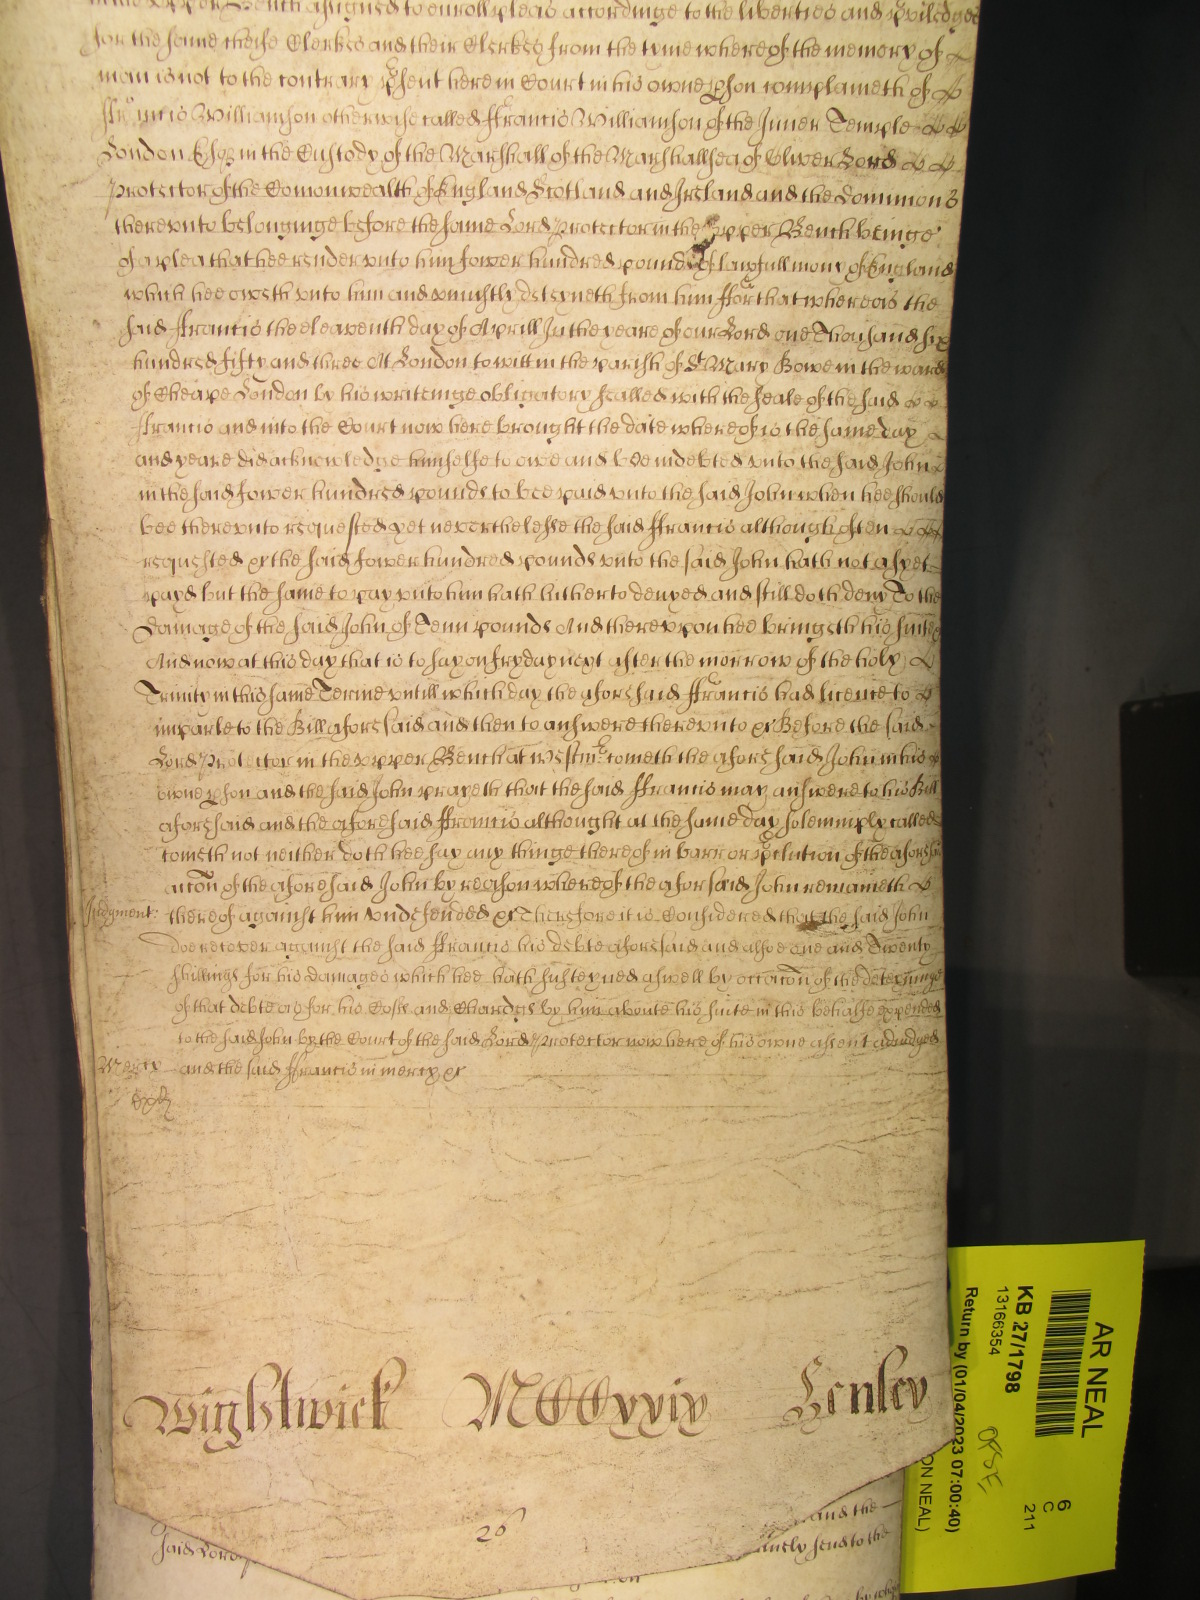 upper Bench assigned to enroll pleas accordinge to the liberties and priviledges
for the same theise Clerkes and their Clerkes from the tyme whereof the memory of
man is not to the contrary psent here in Court in his owne pson complaineth of
ffrancis Williamson otherwise called ffrancis Williamson of the Inner Temple
London Esqr in the Custody of the Marshall of the Marshallsea of Oliver Lord
Protector of the Comonwealth of England Scotland and Ireland and the Dominions
therevnto belonginge before the same Lord Protector in the vpper Bench beinge
of a plea that hee render vnto him fower hundred pounds of lawfull mony of England
which hee oweth vnto him and vniustly deteyneth from him ffor that whereas the
said ffrancis the eleaventh day of Aprill In the yeare of our Lord one Thousand six
hundred fifty and three At London to witt in the parish of St Mary Bowe in the ward
of Cheape London by his writeinge obligatory sealled with the seale of the said
ffrancis and into the Court now here brought the date whereof is the same day
and yeare did acknowledge himselfe to owe and bee indebted vnto the said John
in the said fower hundred pounds to bee paid vnto the said John when hee should
bee therevnto requested yet neverthelesse the said ffrancis although often
requested &c the said fower hundred pounds vnto the said John hath not as yet
payd but the same to pay vnto him hath hitherto denyed and still doth deny To the
Damage of the said John of Tenn pounds And therevpon hee bringeth his suite
And now at this day that is to say on fryday next after the morrow of the holy
Trinity in this same Terme vntill which day the aforesaid ffrancis had licence to
imparle to the Bill aforesaid and then to answere therevnto &c Before the said
Lord Protector in the vpper Bench at Westmr cometh the aforesaid John in his
owne pson and the said John prayeth that the said ffrancis may answere to his Bill
aforesaid and the aforesaid ffrancis althought at the same day solemmply called
cometh not neither doth hee say any thinge thereof in barr or pclution of the aforesaid
accon of the aforesaid John by reason whereof the aforesaid John remaineth
Judgment: thereof against him vndefended &c Therefore it is Considered that the said John
doe recover against the said ffrancis his debte aforesaid and alsoe one and Twenty
shillings for his damages which hee hath susteyned aswell by occacon of the deteyninge
of that debte as for his Costs and Chardges by him aboute his suite in this behalfe expended
to the said John by the Court of the said Lord Protector now here of his owne assent adiudged
Mercy and the said ffrancis in mercy &c
Wightwick MCCxxiv Henley
26
said Lord
and the
send to the
AR NEAL
KB 27/1798
13166354
Return by (01/04/2023 07:00:40)
ON NEAL)
6
C
211